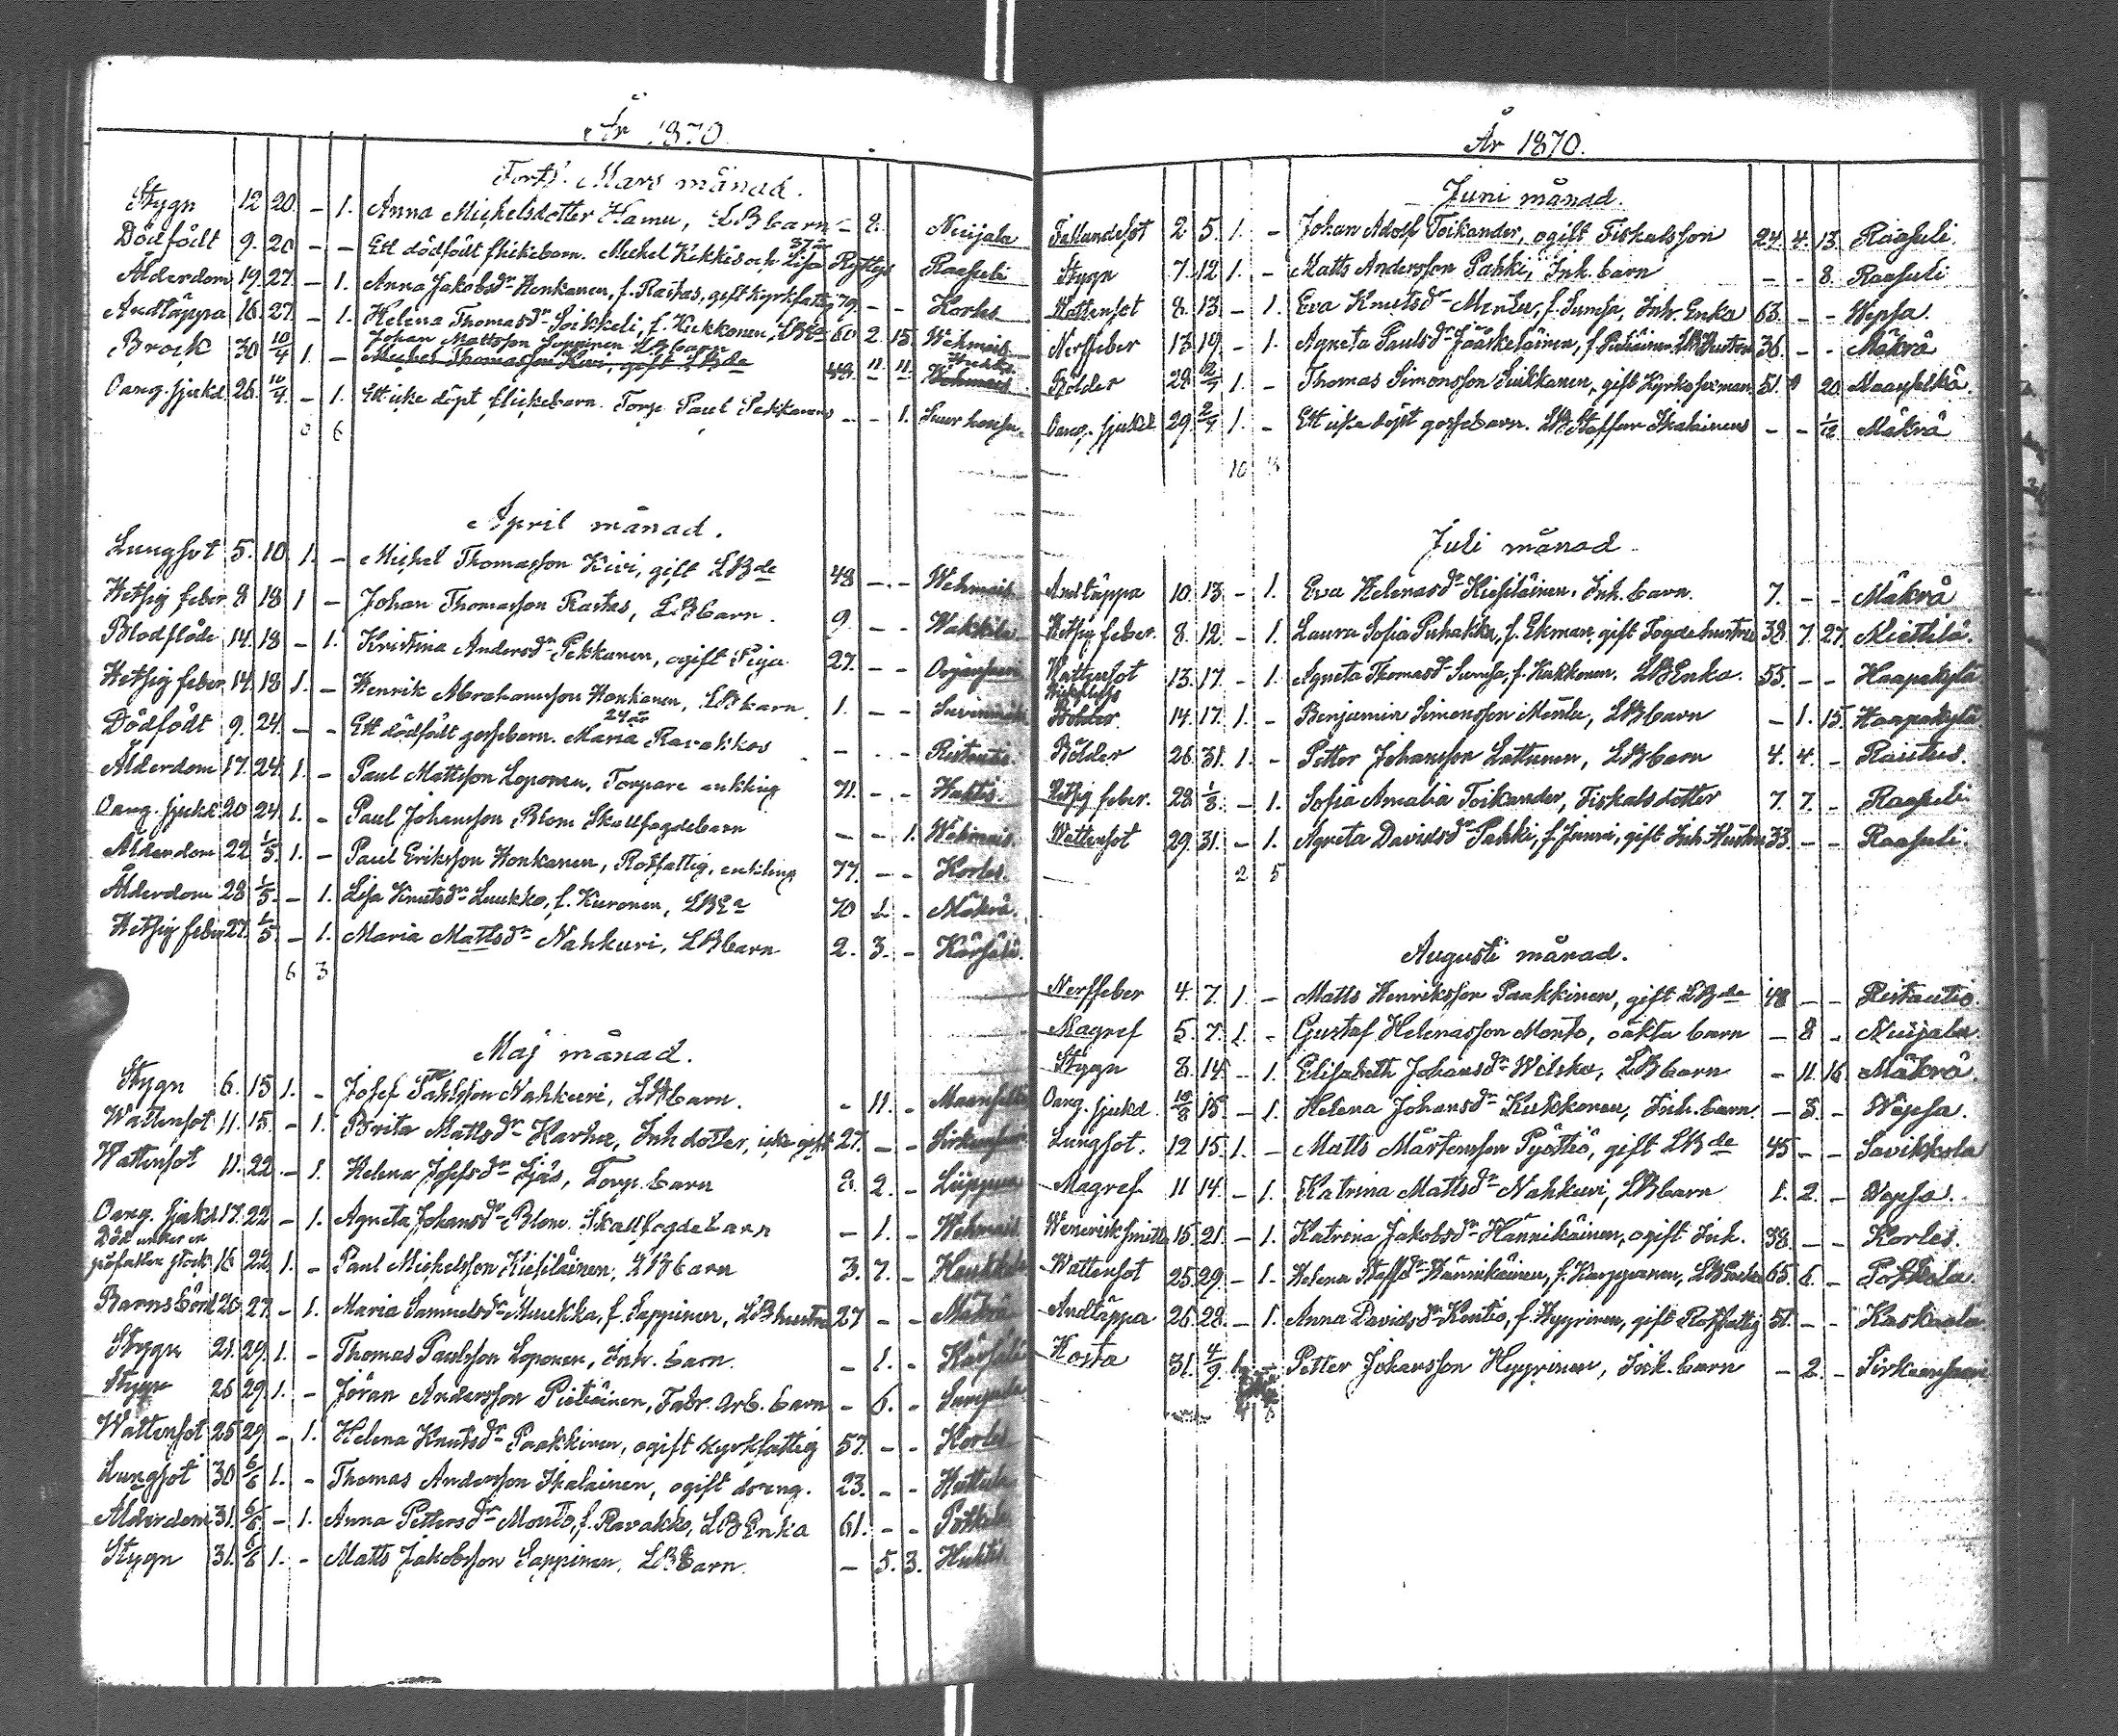 År 1870.
Forts. Mars månad.
Stygn 12 20. – 1. Anna Michelsdotter Hamu, LB barn – 2. Niujala
Dödfödt 9. 20 – – Ett dödfödt flickebarn. Michel Kekkis och Lisa 37 år Raasuli
Ålderdom 19. 27. – 1. Anna Jakobsdr Honkanen, f. Rastas, gift Kyrkfattig 79. – – Korles
Andtäppa 16. 27. – 1. Helena Thomasdr Soikkeli, f. Kiekkonen, LBEa 60 2. 15. Wehmais
Johan Mattsson Sappinen LB barn
Brock 30 10/4 1. – Michel Thomasson Kivi, gift LBde 48. 11. 11. Wehmais
Oang. sjukd. 26. 10/4. – 1. Ett icke döpt flickebarn. Torp. Paul Pekkanens – – 1. Suurhousu
6
April månad.
Lungsot 5. 10. 1. – Michel Thomasson Kivi, gift LBde 48 – – Wehmais
Hetsig feber 8 18 1 – Johan Thomasson Rastas, LB barn. 9. – – Wakkila
Blodflöde 14. 18 – 1. Kristina Andersdr Pekkanen, ogift Piga 27. – –
Hetsig feber 14. 18 1. – Henrik Abrahamsson Honkanen, LB barn. 1. – –
Dödfödt 9. 24. – – Ett dödfödt gossebarn. Maria 24 år Ravakkos – – – Ristautio
Ålderdom 17. 24. 1. – Paul Mattsson Loponen, Torpare enkling 71. – – Huhtis.
Oang. sjukd 20 24 1. – Paul Johansson Blom Skallfogdebarn – – 1. Wehmais.
Ålderdom 22 1/5. 1. – Paul Eriksson Honkanen, Rotfattig, enkling 77. – – Korles.
Ålderdom 28 1/5 – 1. Lisa Knutsdr Luukko, f. Kuronen, LBEa 70 2. – Mäkrä.
Hetsig feber 27. 1/5. – 1. Maria Mattsdr Nahkuri, LB barn 2. 3. – Kärsälä.
6 3
Maj månad.
Stygn 6. 15 1. – Josef Pahlsson Nahkuri, LB barn. – 11. – Maanselkä
Wattensot 11. 15. – 1. Brita Mattsdr Karhu, Inh dotter, icke gift 27. – – Sirkiansaari
Wattensot 11. 22. – 1. Helena Josefsdr Ljäs, Torp. barn 2. 2. –
Oang. sjukd 17. 22 – 1. Agneta Johansdr Blom. Skallfogdebarn – 1. – Wehmais
Död under en
påfallen stock 16 22. 1. – Paul Michelsson Kiesiläinen, LB barn 3. 7. –
Barnsbörd 26. 27. – 1. Maria Samuelsdr Muukka, f. Sappinen, LB hustru 27 – – Mäkrä
Stygn 21. 29. 1. – Thomas Paulsson Loponen, Inh. barn. – 1. – Kärsälä
Stygn 26 29 1. – Jöran Andersson Pietiäinen, Fabr. arb. barn – 6. –
Wattensot 25 29 – 1. Helena Knutsdr Paakkinen, ogift Kyrkfattig 57. – – Korles
Lungsot 30 6/6 1. – Thomas Andersson Skalainen, ogift dreng. 23. – –
Ålderdom 31. 6/6 – 1. Anna Pettersdr Monto, f. Ravakko, LB Enka 61. – – Potkela
Stygn 31. 6/6 1. – Matts Jakobsson Sappinen, LB barn. – 5. 3. Huhtis
År 1870.
Juni månad.
Fallandesot 2. 5. 1. – Johan Adolf Toikander, ogift Fiskalsson 24. 4. 13. Raasuli.
Stygn 7. 12 1. – Matts Andersson Pahki, Inh. barn – – 8. Raasuli
Wattensot 8. 13. – 1. Eva Knutsdr Mentu, f. Sumsa, Inh. Enka 63. – – Wepsa.
Nerffeber 13. 19 – 1. Agneta Paulsdr Jääskeläinen, f. Pietiäinen LB hustru 36. – – Mäkrä
Bölder 28. 1. – Thomas Simonsson Suikkanen, gift Kyrkosexman 51. 20. Maanselkä.
Oang. sjukd 29. 1. – Ett icke döpt gossebarn. LB Staffan Skalainens – – 1/12 Mäkrä
10
Juli månad
Andtäppa 10. 13. – 1. Eva Helenasdr Kiesiläinen. Inh. barn. 7. – – Mäkrä
Hetsig feber. 8. 12. – 1. Laura Sofia Puhakka, f. Ekman, gift Fogdehustru 38. 7. 27. Miettilä.
Wattensot 13. 17. – 1. Agneta Thomasdr Sumsa, f. Kukkonen. LB Enka. 55. – – Haapakylä
Bölder. 14. 17. 1. – Benjamin Simonsson Mentu, LB barn – 1. 15. Haapakylä
Bölder 26. 31. 1. – Petter Johansson Lattunen, LB barn 4. 4. – Rautus.
Hetsig feber. 28 1/8. – 1. Sofia Amalia Toikander, Fiskalsdotter 7. 7. – Raasuli
Wattensot 29. 31. – 1. Agneta Davidsdr Pahki, f. Junni, gift Inh. Hustru 33. – – Raasuli.
2 5
Augusti månad.
Nerffeber 4. 7. 1. – Matts Henriksson Paakkinen, gift LBde 48 – – Ristautio.
Magref 5. 7. 1. – Gustaf Helenasson Monto, oäkta barn – 8 – Niujala.
Stygn 8. 14. – 1. Elisabeth Johansdr Wilska, LB barn – 11. 16 Mäkrä.
Oang. sjukd. 10/8 15. – 1. Helena Johansdr Kukkonen, Inh. barn. – 3. – Wepsa.
Lungsot. 12 15. 1. – Matts Mårtensson Pyöttiö, gift LBde 45 – – Savikkola
Magref 11 14. – 1. Katrina Mattsdr Nahkuri, LB barn 1. 2. – Wepsa.
Wenerisk smitta 15. 21. – 1. Katrina Jakobsdr Hännikäinen, ogift Inh. 38. – – Korles.
Wattensot 25. 29. – 1. Helena Staffsdr Hännikäinen, f. Karppanen, LB Enka 65. 6. – Potkela.
Andtäppa 26. 28. – 1. Anna Davidsdr Kontio, f. Hyyrinen, gift Rotfattig 51. – – Kaskaala
Hosta 31. 4/9 1. – Petter Johansson Hyyrinen, Inh. barn – 2. – Sirkiansaari